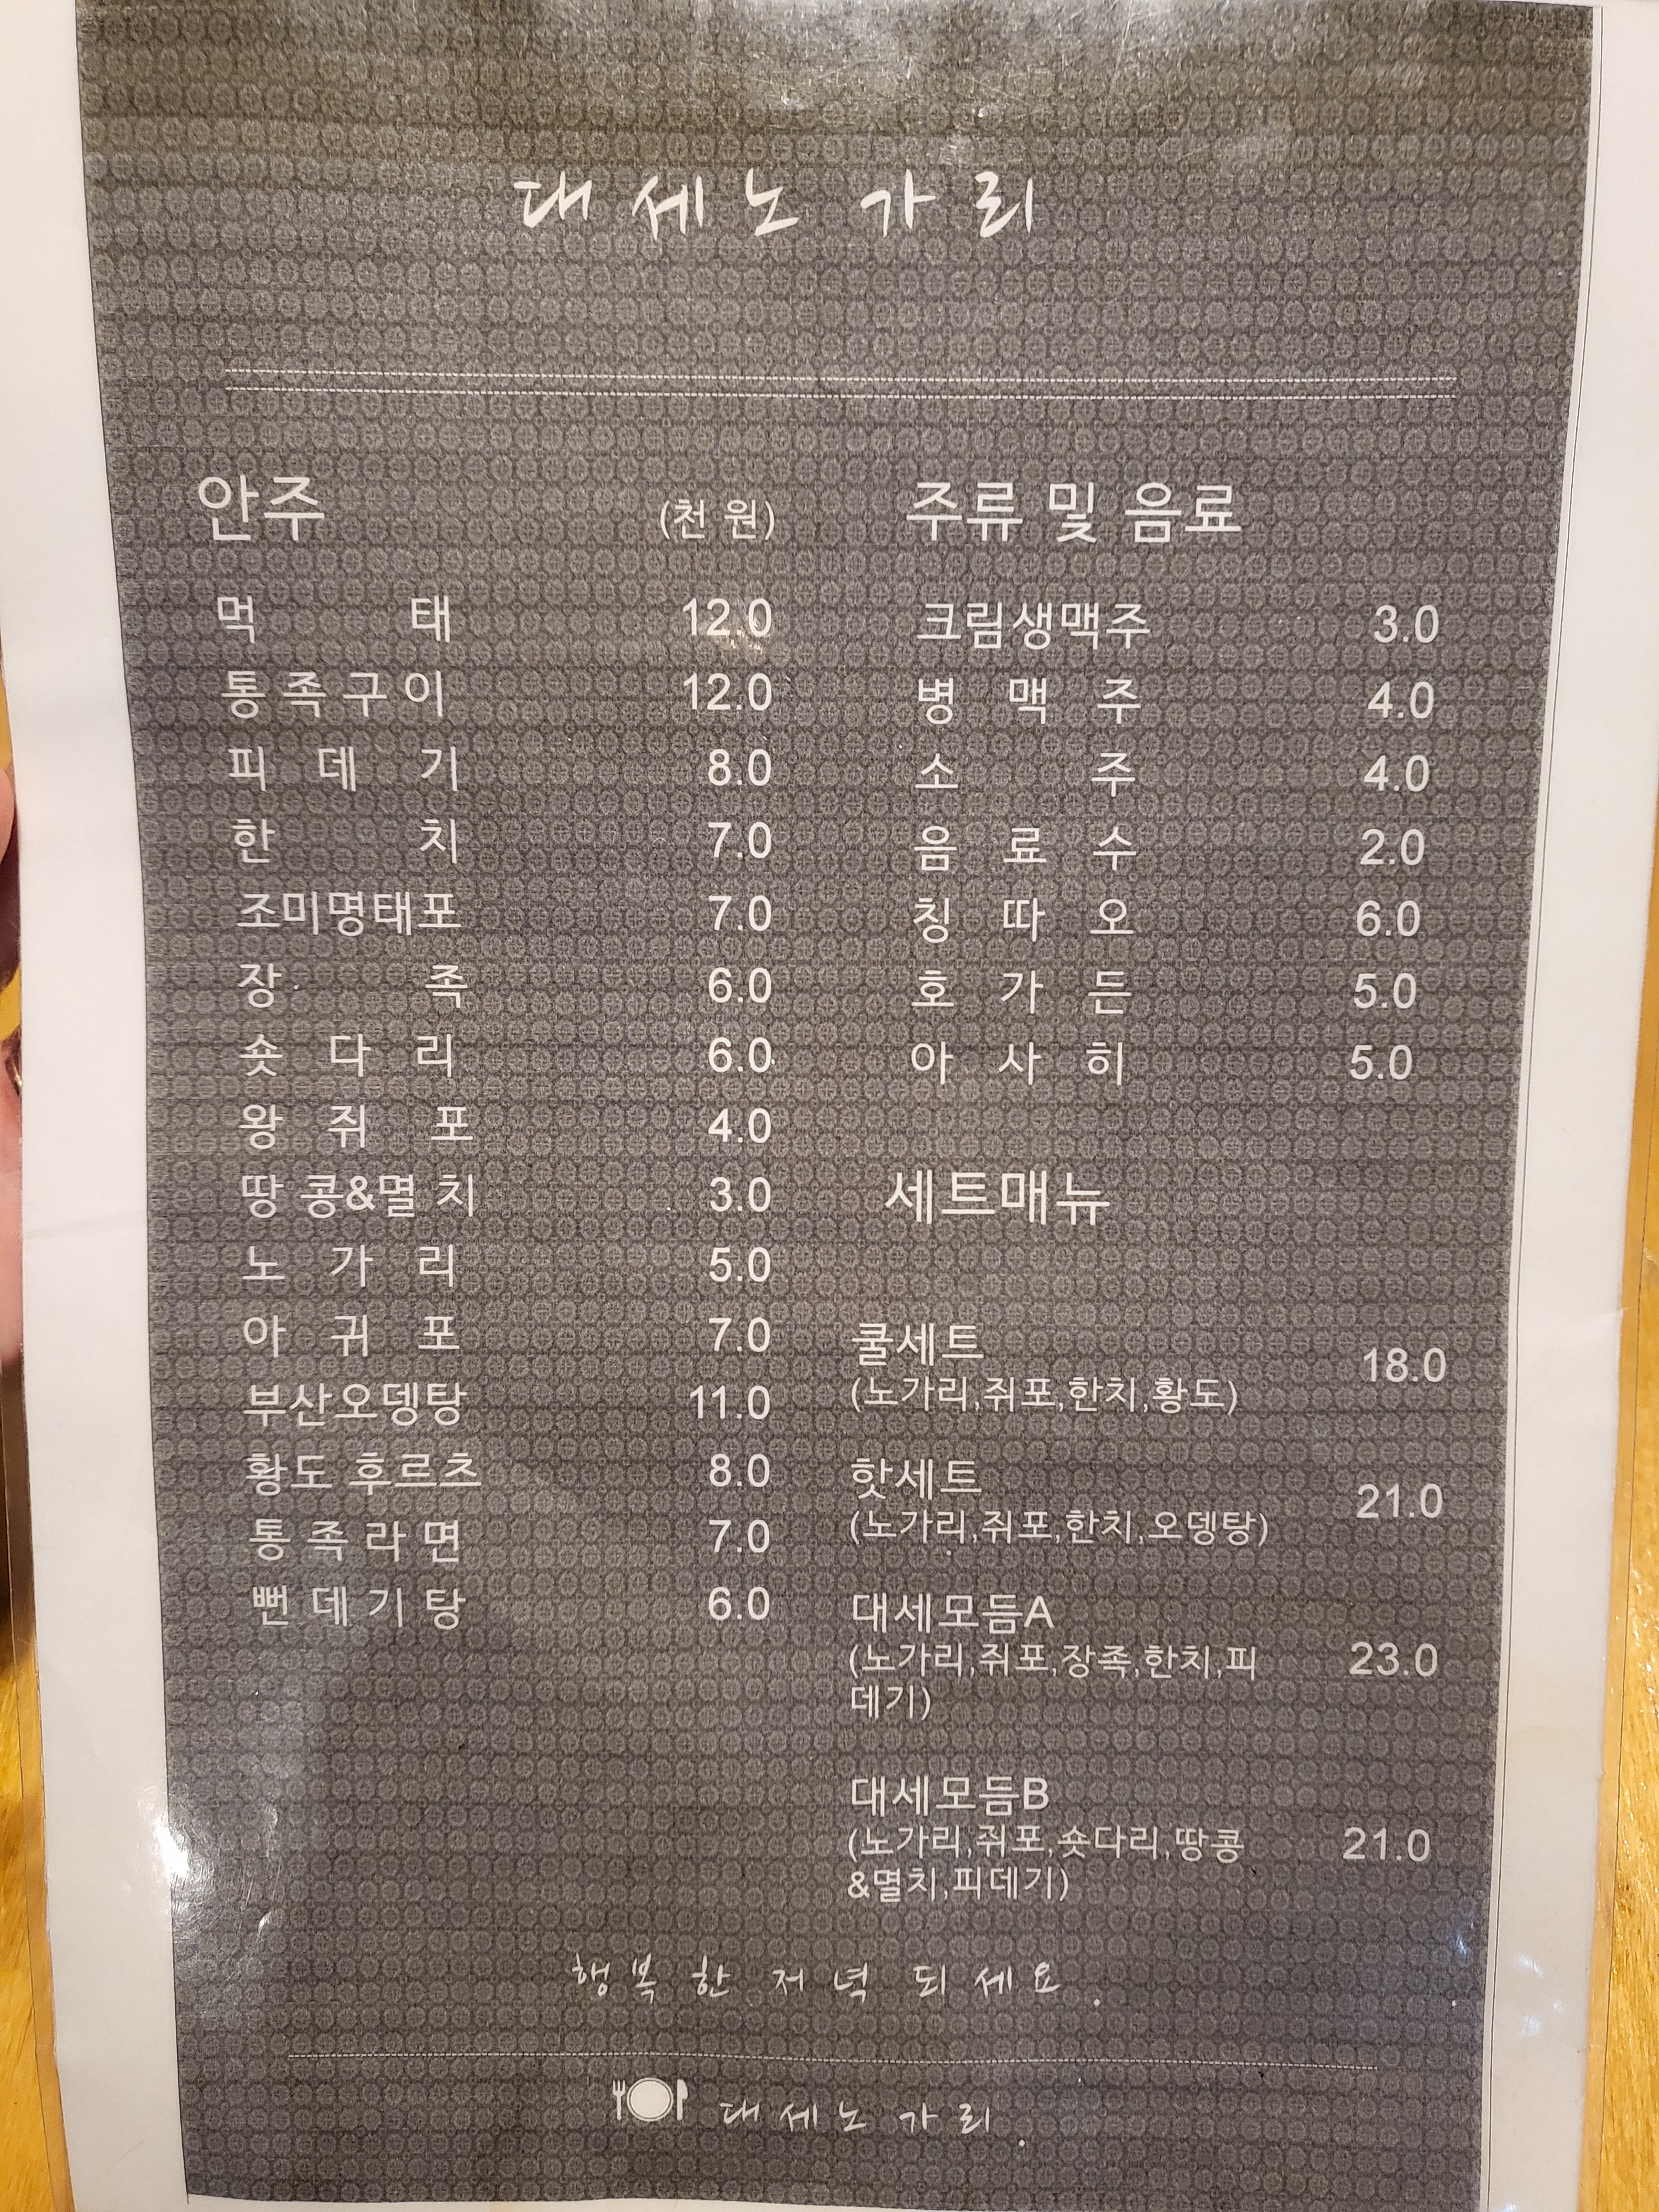 대세노 가리
안주 (천 원)
먹 태 12.0
통 족 구 이 12.0
피 데 기 8.0
한 치 7.0
조미명태포 7.0
장 족 6.0
숏 다 리 6.0
왕 쥐 포 4.0
땅 콩&멸 치 3.0
노 가 리 5.0
아 귀 포 7.0
부산오뎅탕 11.0
황도 후르츠 8.0
통 족 라 면 7.0
뻔 데 기 탕 6.0
주류 및 음료
크림생맥주 3.0
병 맥 주 4.0
소 주 4.0
음 료 수 2.0
칭 따 오 6.0
호 가 든 5.0
아 사 히 5.0
세트매뉴
쿨세트 18.0
(노가리,쥐포,한치,황도)
핫세트 21.0
(노가리,쥐포,한치,오뎅탕)
대세모듬A
(노가리,쥐포,장족,한치,피 23.0
데기)
대세모듬B
(노가리,쥐포,숏다리,땅콩 21.0
&멸치,피데기)
행복 한 저녁 되세요.
대세노 가리.